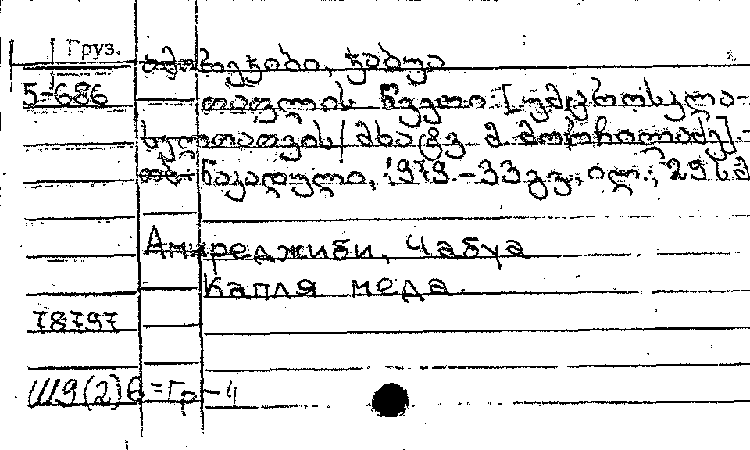 Груз.
ამირეჯიბი, ჭაბუა
5-686
თაფლის წვეთი [უმცროსკლა-
სელთათვის / მხატვ. მ.
ნაკადული, 1979.-33 გვ., ილ.; 29 სმ
Амиреджиби, Чабуа
Капля меда.
78797
Ш9(2)6=Гр-4